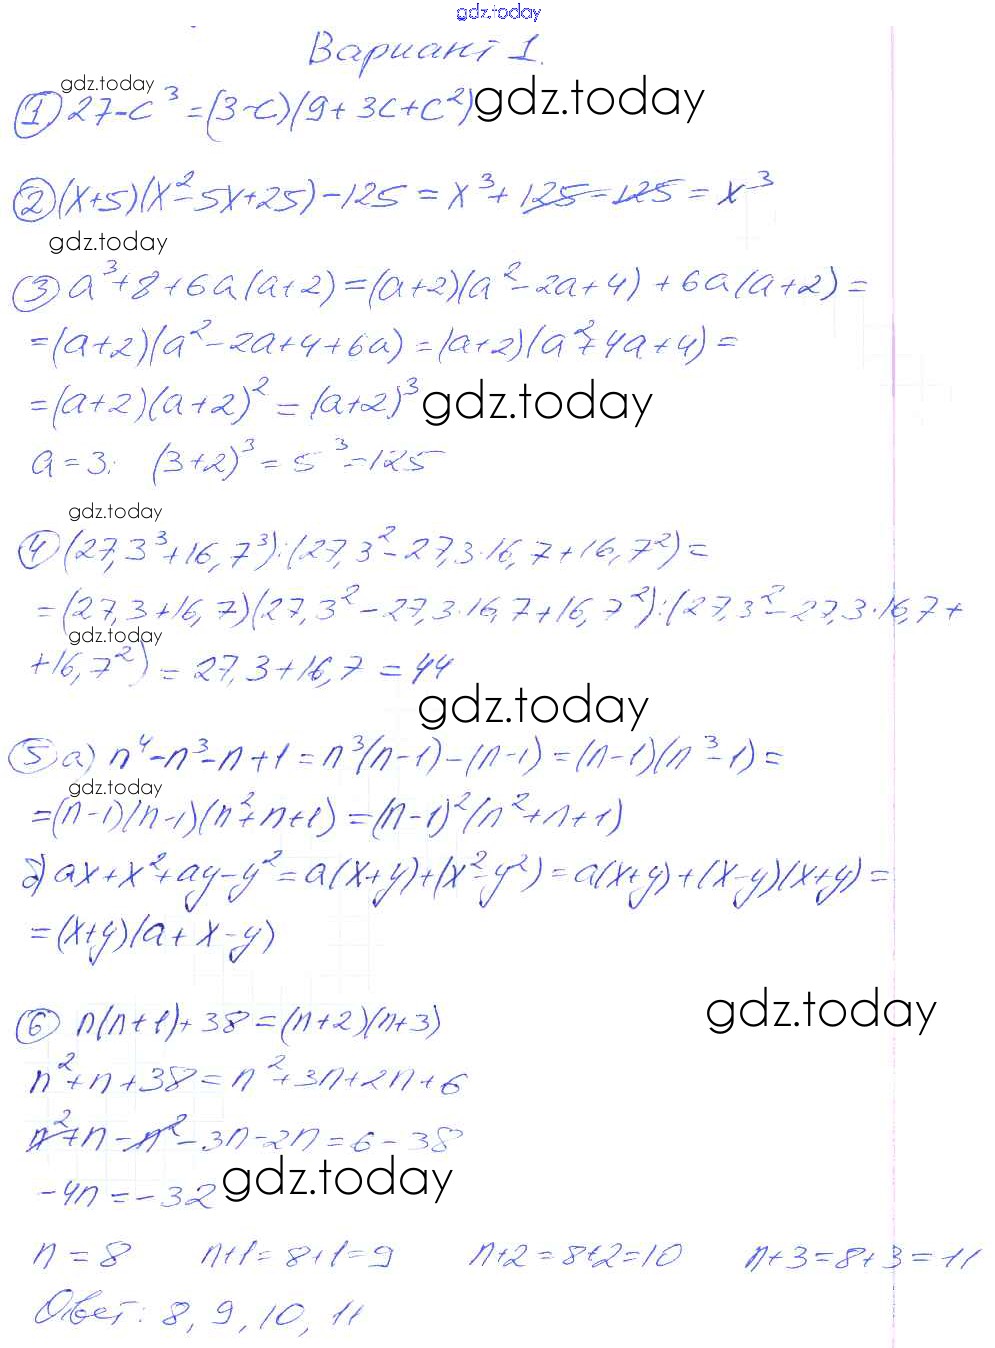 gdz.today
Вариант 1.
gdz.today
① 27-c³=(3-c)(9+3c+c²) gdz.today
② (x+5)(x²-5x+25)-125=x³+125-125=x³
gdz.today
③ a³+8+6a(a+2)=(a+2)(a²-2a+4)+6a(a+2)=
=(a+2)(a²-2a+4+6a)=(a+2)(a²+4a+4)=
=(a+2)(a+2)²=(a+2)³ gdz.today
a=3: (3+2)³=5³=125
gdz.today
④ (27,3³+16,7³):(27,3²-27,3·16,7+16,7²)=
=(27,3+16,7)(27,3²-27,3·16,7+16,7²):(27,3²-27,3·16,7+
gdz.today
+16,7²)=27,3+16,7=44
gdz.today
⑤ а) n⁴-n³-n+1=n³(n-1)-(n-1)=(n-1)(n³-1)=
gdz.today
=(n-1)(n-1)(n²+n+1)=(n-1)²(n²+n+1)
б) ax+x²+ay-y²=a(x+y)+(x²-y²)=a(x+y)+(x-y)(x+y)=
=(x+y)(a+x-y)
gdz.today
⑥ n(n+1)+38=(n+2)(n+3)
n²+n+38=n²+3n+2n+6
n²+n-n²-3n-2n=6-38
gdz.today
-4n=-32
n=8 n+1=8+1=9 n+2=8+2=10 n+3=8+3=11
Ответ: 8, 9, 10, 11